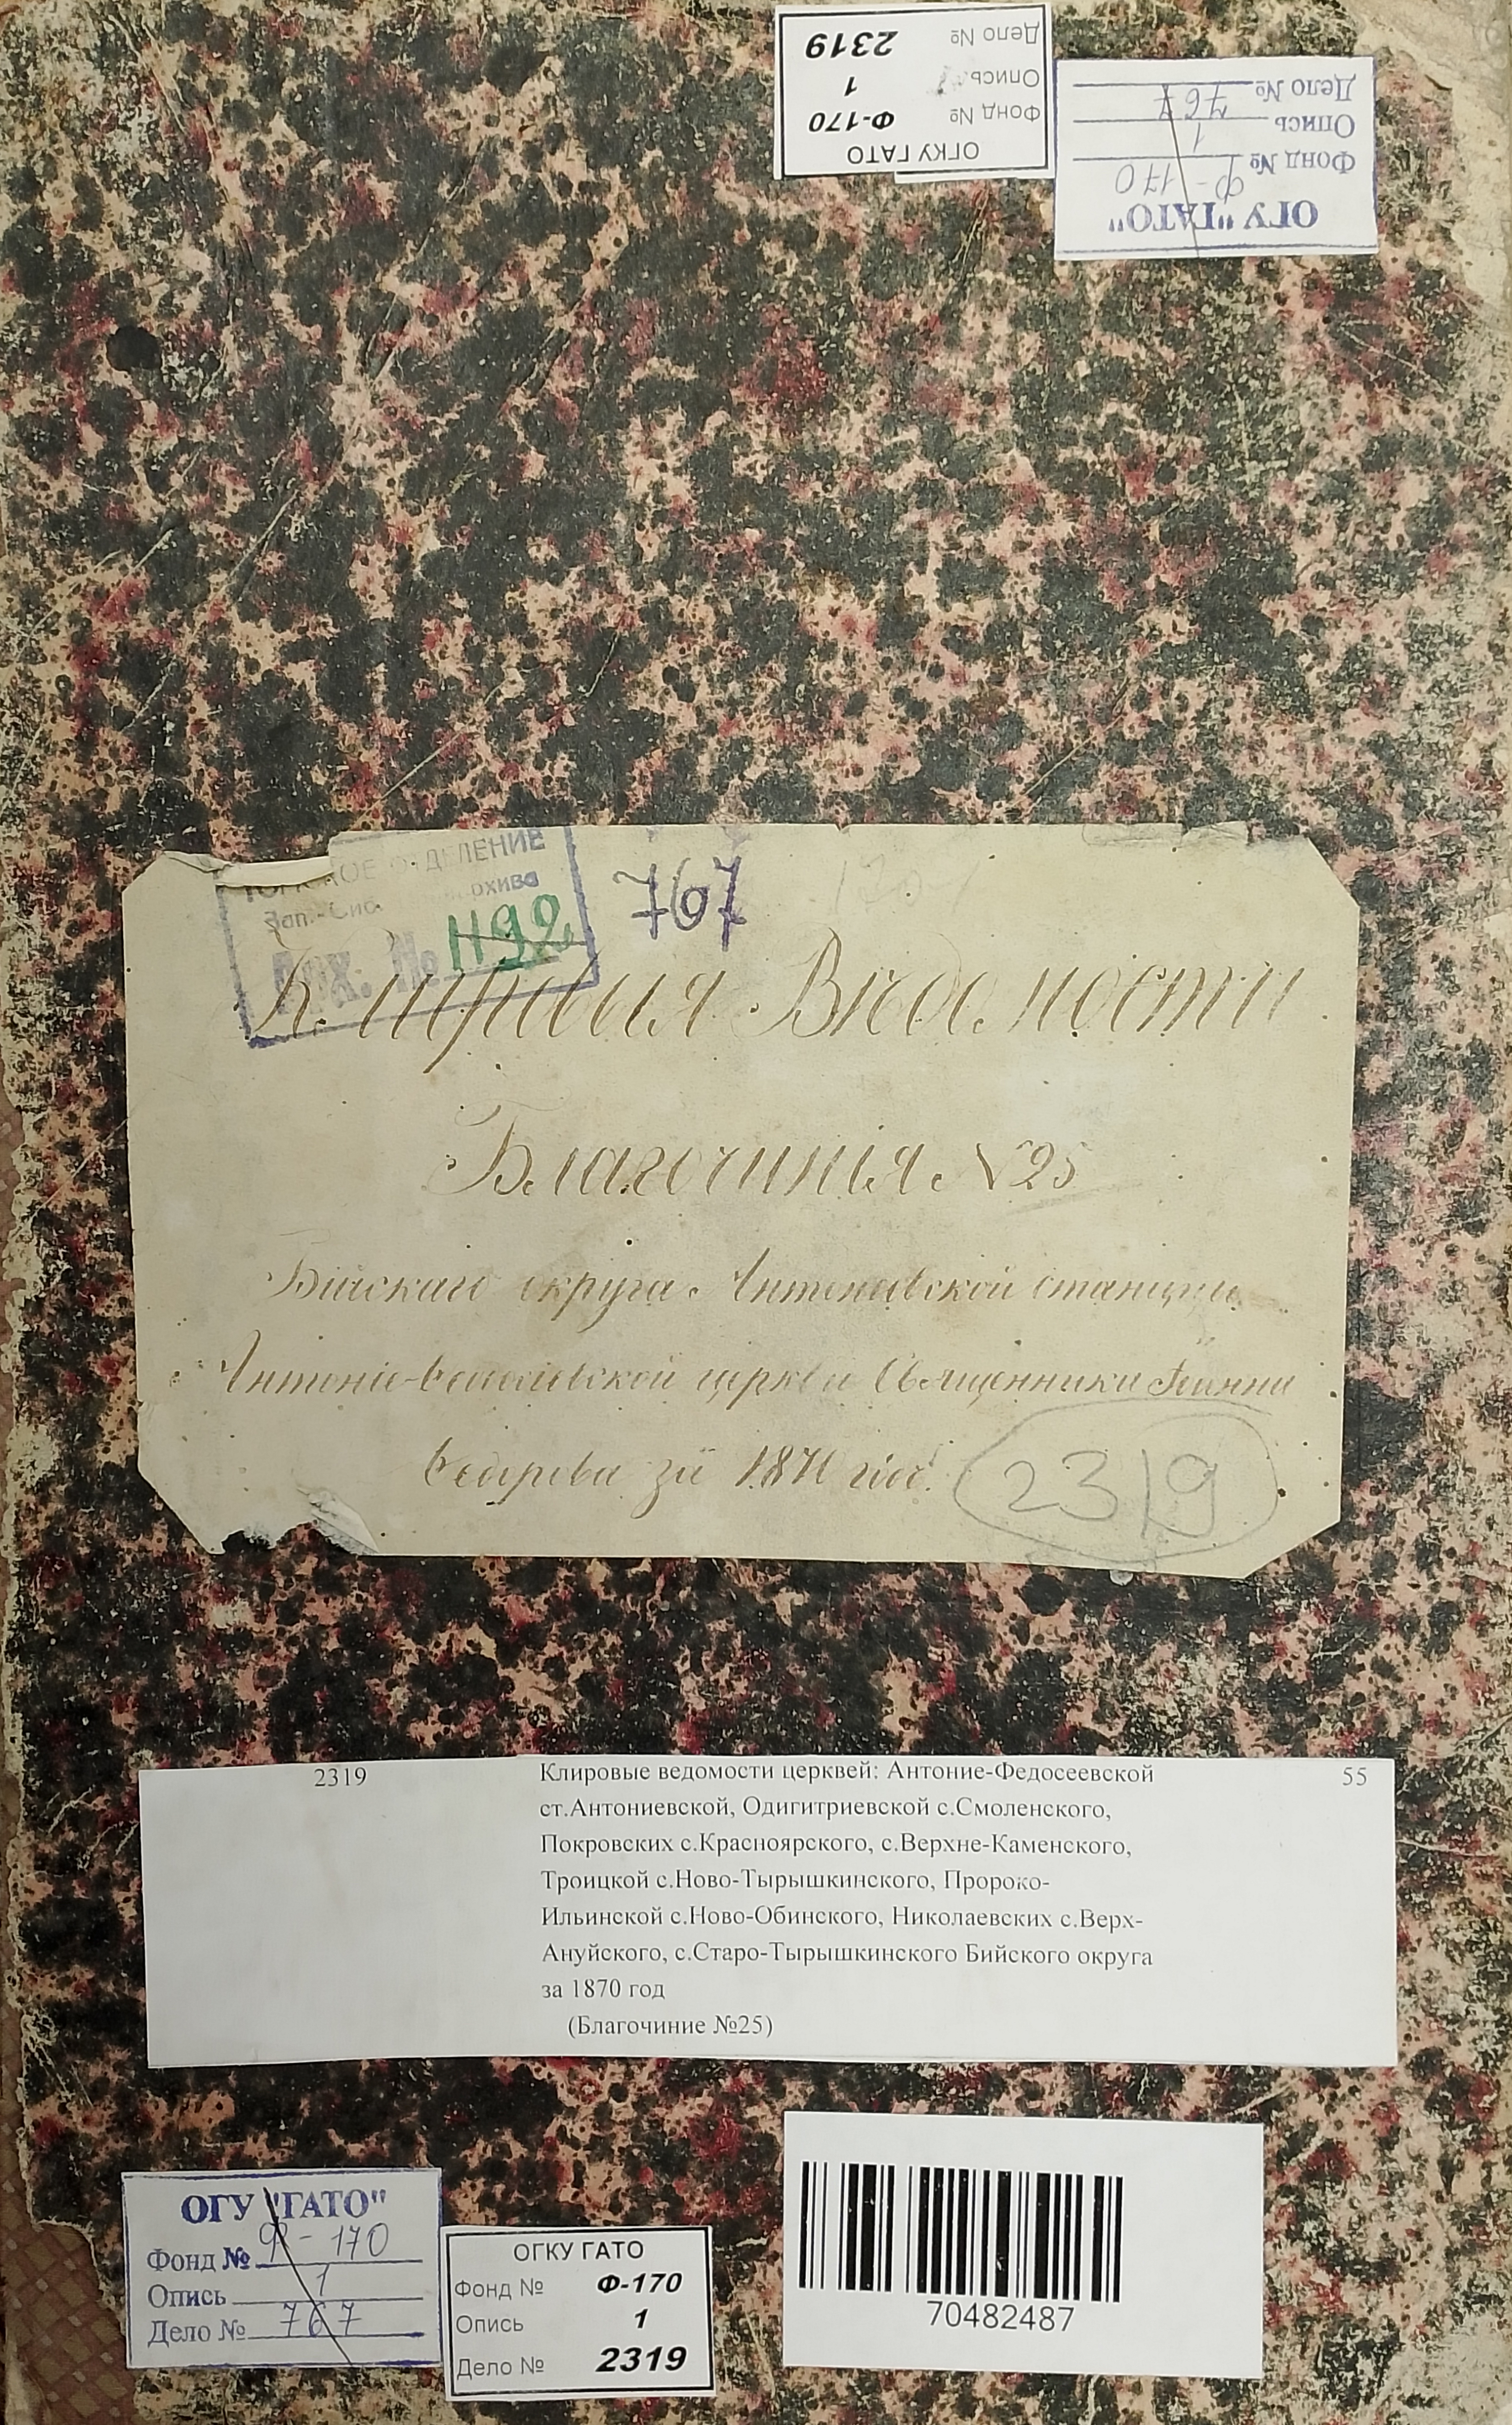 Дело № 2319
Опись 1
Фонд № Ф-170
ОГКУ ГАТО
Дело № 767
Опись 1
Фонд № Ф-170
ОГУ "ГАТО"
ОТДЕЛЕНИЕ
Зап.-Сиб. архива
Арх. № 1192
767
Клировыя Вѣдомости
Благочинія №25
Бійскаго округа Антоньевской станицы
Антоніе-Ѳеодосіевской церкви Священника Іоанна
Ѳедорова за 1870 годъ.
2319
2319 Клировые ведомости церквей: Антоние-Федосеевской 55
ст.Антониевской, Одигитриевской с.Смоленского,
Покровских с.Красноярского, с.Верхне-Каменского,
Троицкой с.Ново-Тырышкинского, Пророко-
Ильинской с.Ново-Обинского, Николаевских с.Верх-
Ануйского, с.Старо-Тырышкинского Бийского округа
за 1870 год
(Благочиние №25)
ОГУ "ГАТО"
Фонд № Ф-170
Опись 1
Дело № 767
ОГКУ ГАТО
Фонд № Ф-170
Опись 1
Дело № 2319
70482487